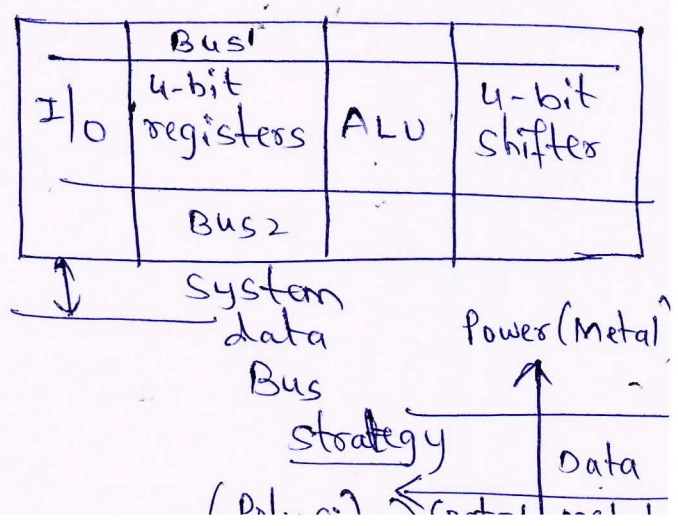 Bus1
I/O 4-bit registers ALU 4-bit shifter
Bus2
system
data
Bus
Power (Metal)
strategy
Data